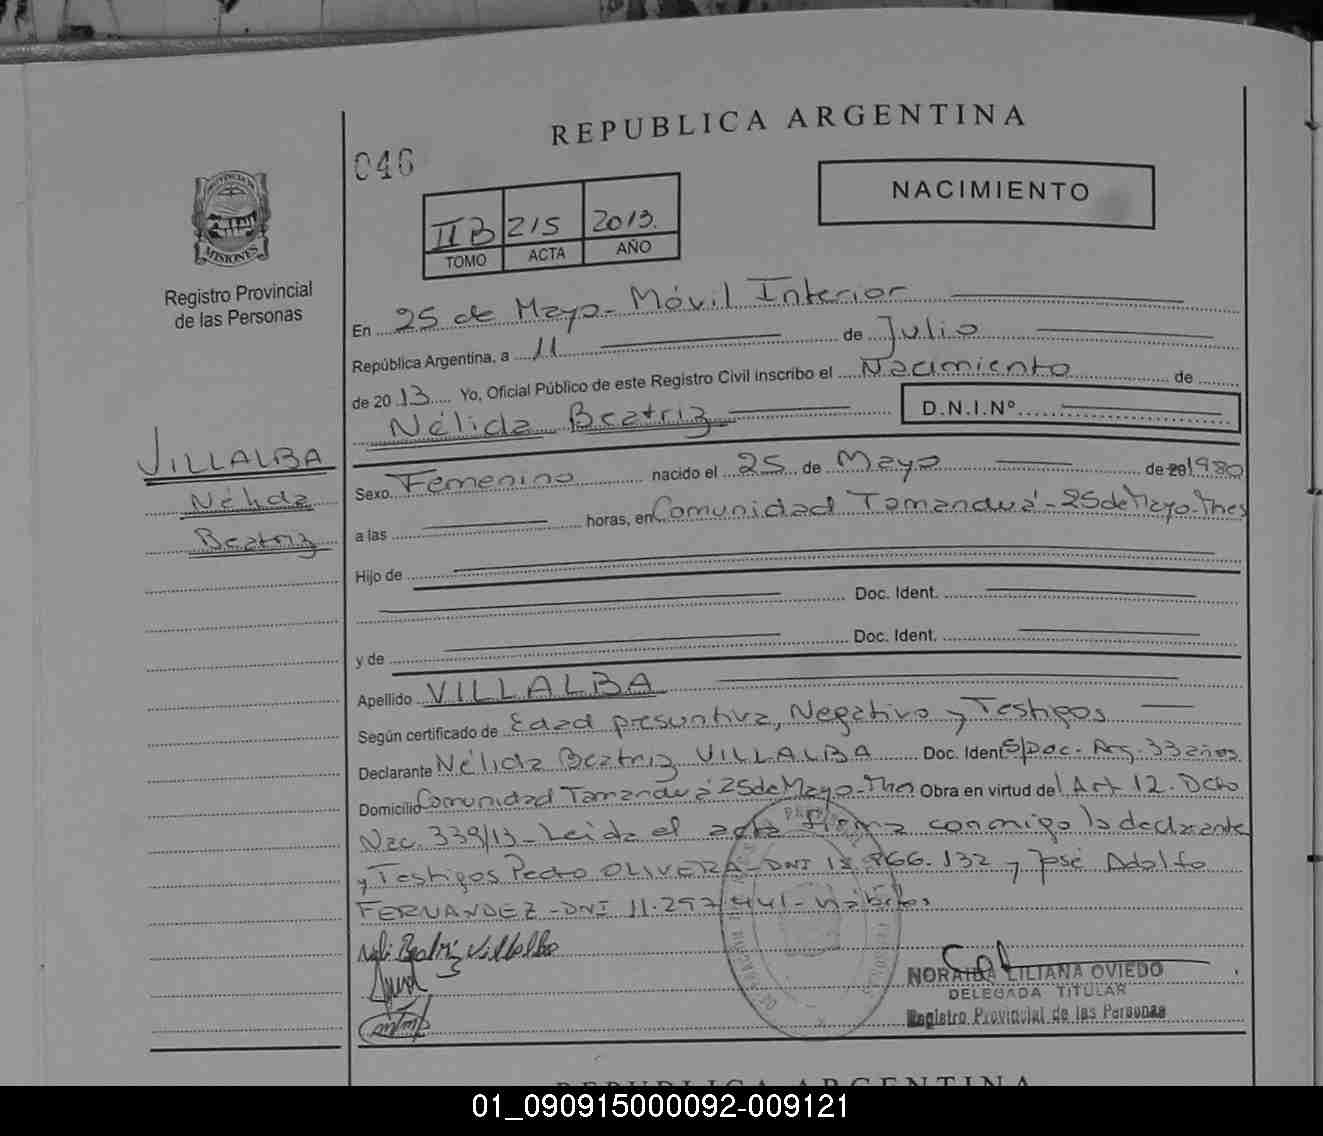 REPUBLICA ARGENTINA
046
NACIMIENTO
IIB 215 2013.
TOMO ACTA AÑO
PROVINCIA DE
MISIONES
Registro Provincial
de las Personas
En 25 de Mayo - Móvil Interior
República Argentina, a 11 de Julio
de 2013 Yo, Oficial Público de este Registro Civil inscribo el Nacimiento de
Nélida Beatriz D.N.I.Nº
VILLALBA
Nélida
Beatriz
Sexo Femenino nacido el 25 de Mayo de 20 1980
a las horas, en Comunidad Tamanduá - 25 de Mayo - Mnes
Hijo de
Doc. Ident.
y de Doc. Ident.
Apellido VILLALBA
Según certificado de Edad presuntiva, Negativo y Testigos
Declarante Nélida Beatriz VILLALBA Doc. Ident S/Doc. Arg. 33 años
Domicilio Comunidad Tamanduá 25 de Mayo - Mnes Obra en virtud del Art 12. Dcto
Nac. 339/13 - Leida el acta firma conmigo la declarante
y Testigos Pedro OLIVERA - DNI 18.866.132 y José Adolfo
FERNANDEZ - DNI 11.297.441 - hábiles
Beatriz Villalba
NORAIDA LILIANA OVIEDO
DELEGADA TITULAR
Registro Provincial de las Personas
REPUBLICA ARGENTINA
01_090915000092-009121